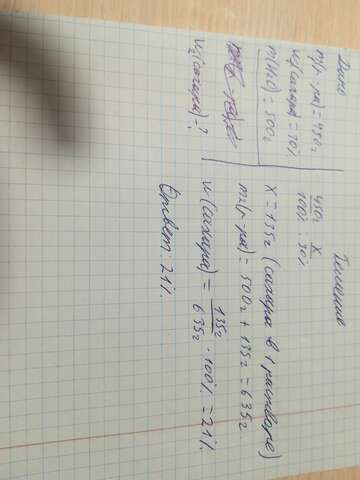 Дано
m(р-ра) = 450г
w₁(сахара) = 30%
m(H₂O) = 500г
w₂(сахара) - ?
Решение
450г / 100% : X / 30%
X = 135г (сахара в 1 растворе)
m₂(р-ра) = 500г + 135г = 635г
w(сахара) = 135г / 635г · 100% = 21%
Ответ: 21%.